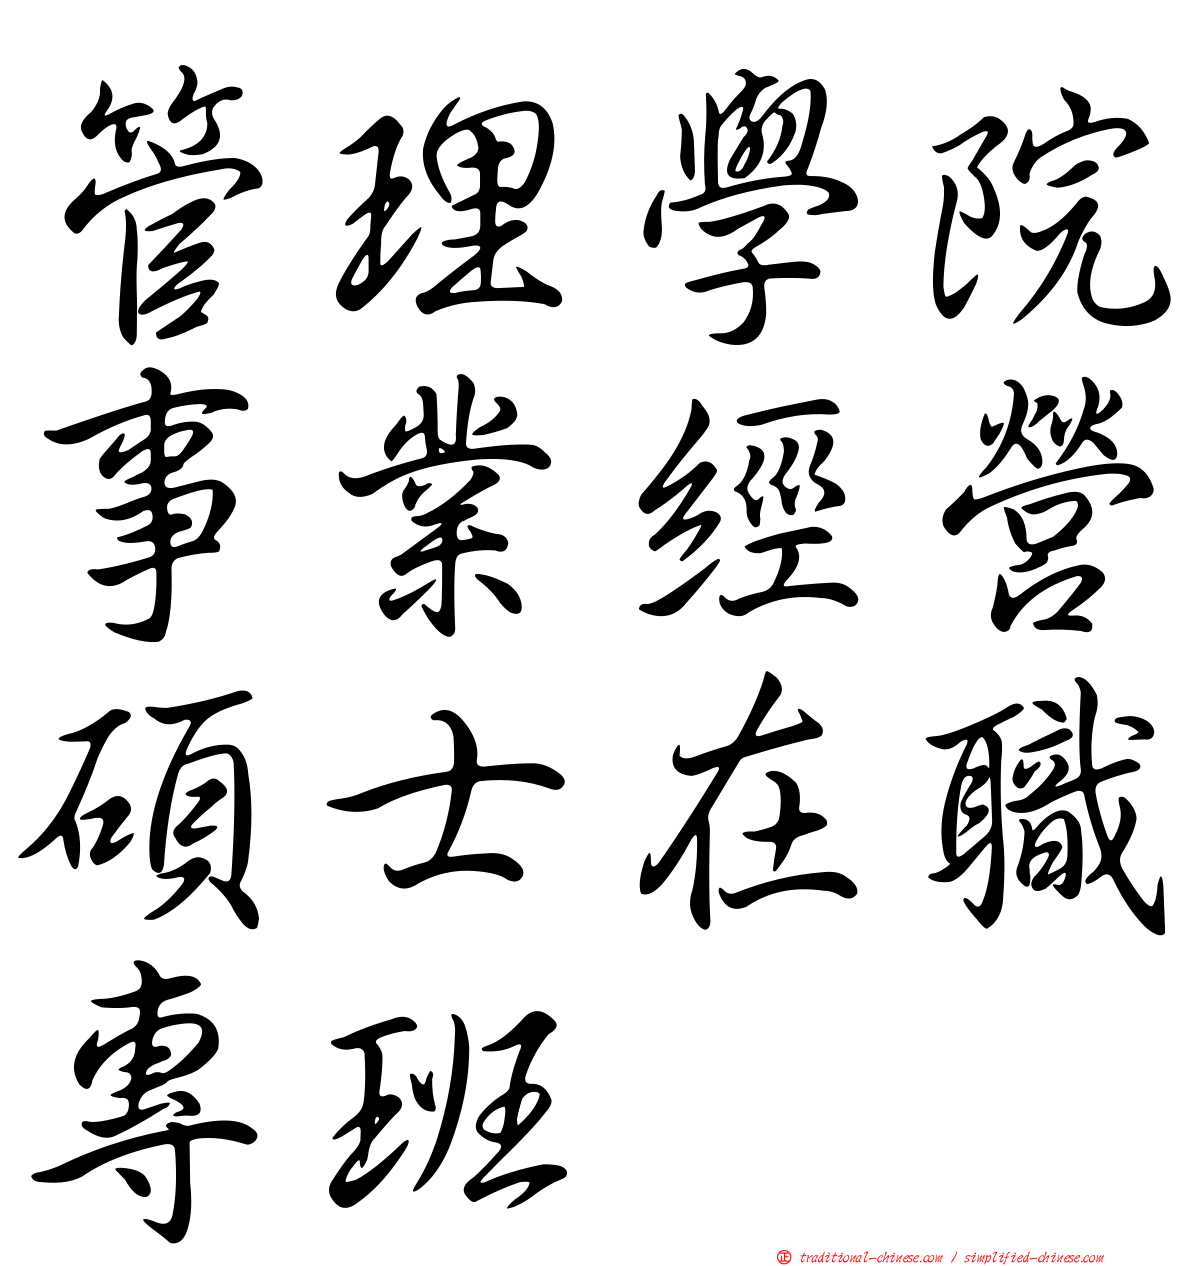 管理學院
事業經營
碩士在職
專班
正 traditional-chinese.com / simplified-chinese.com